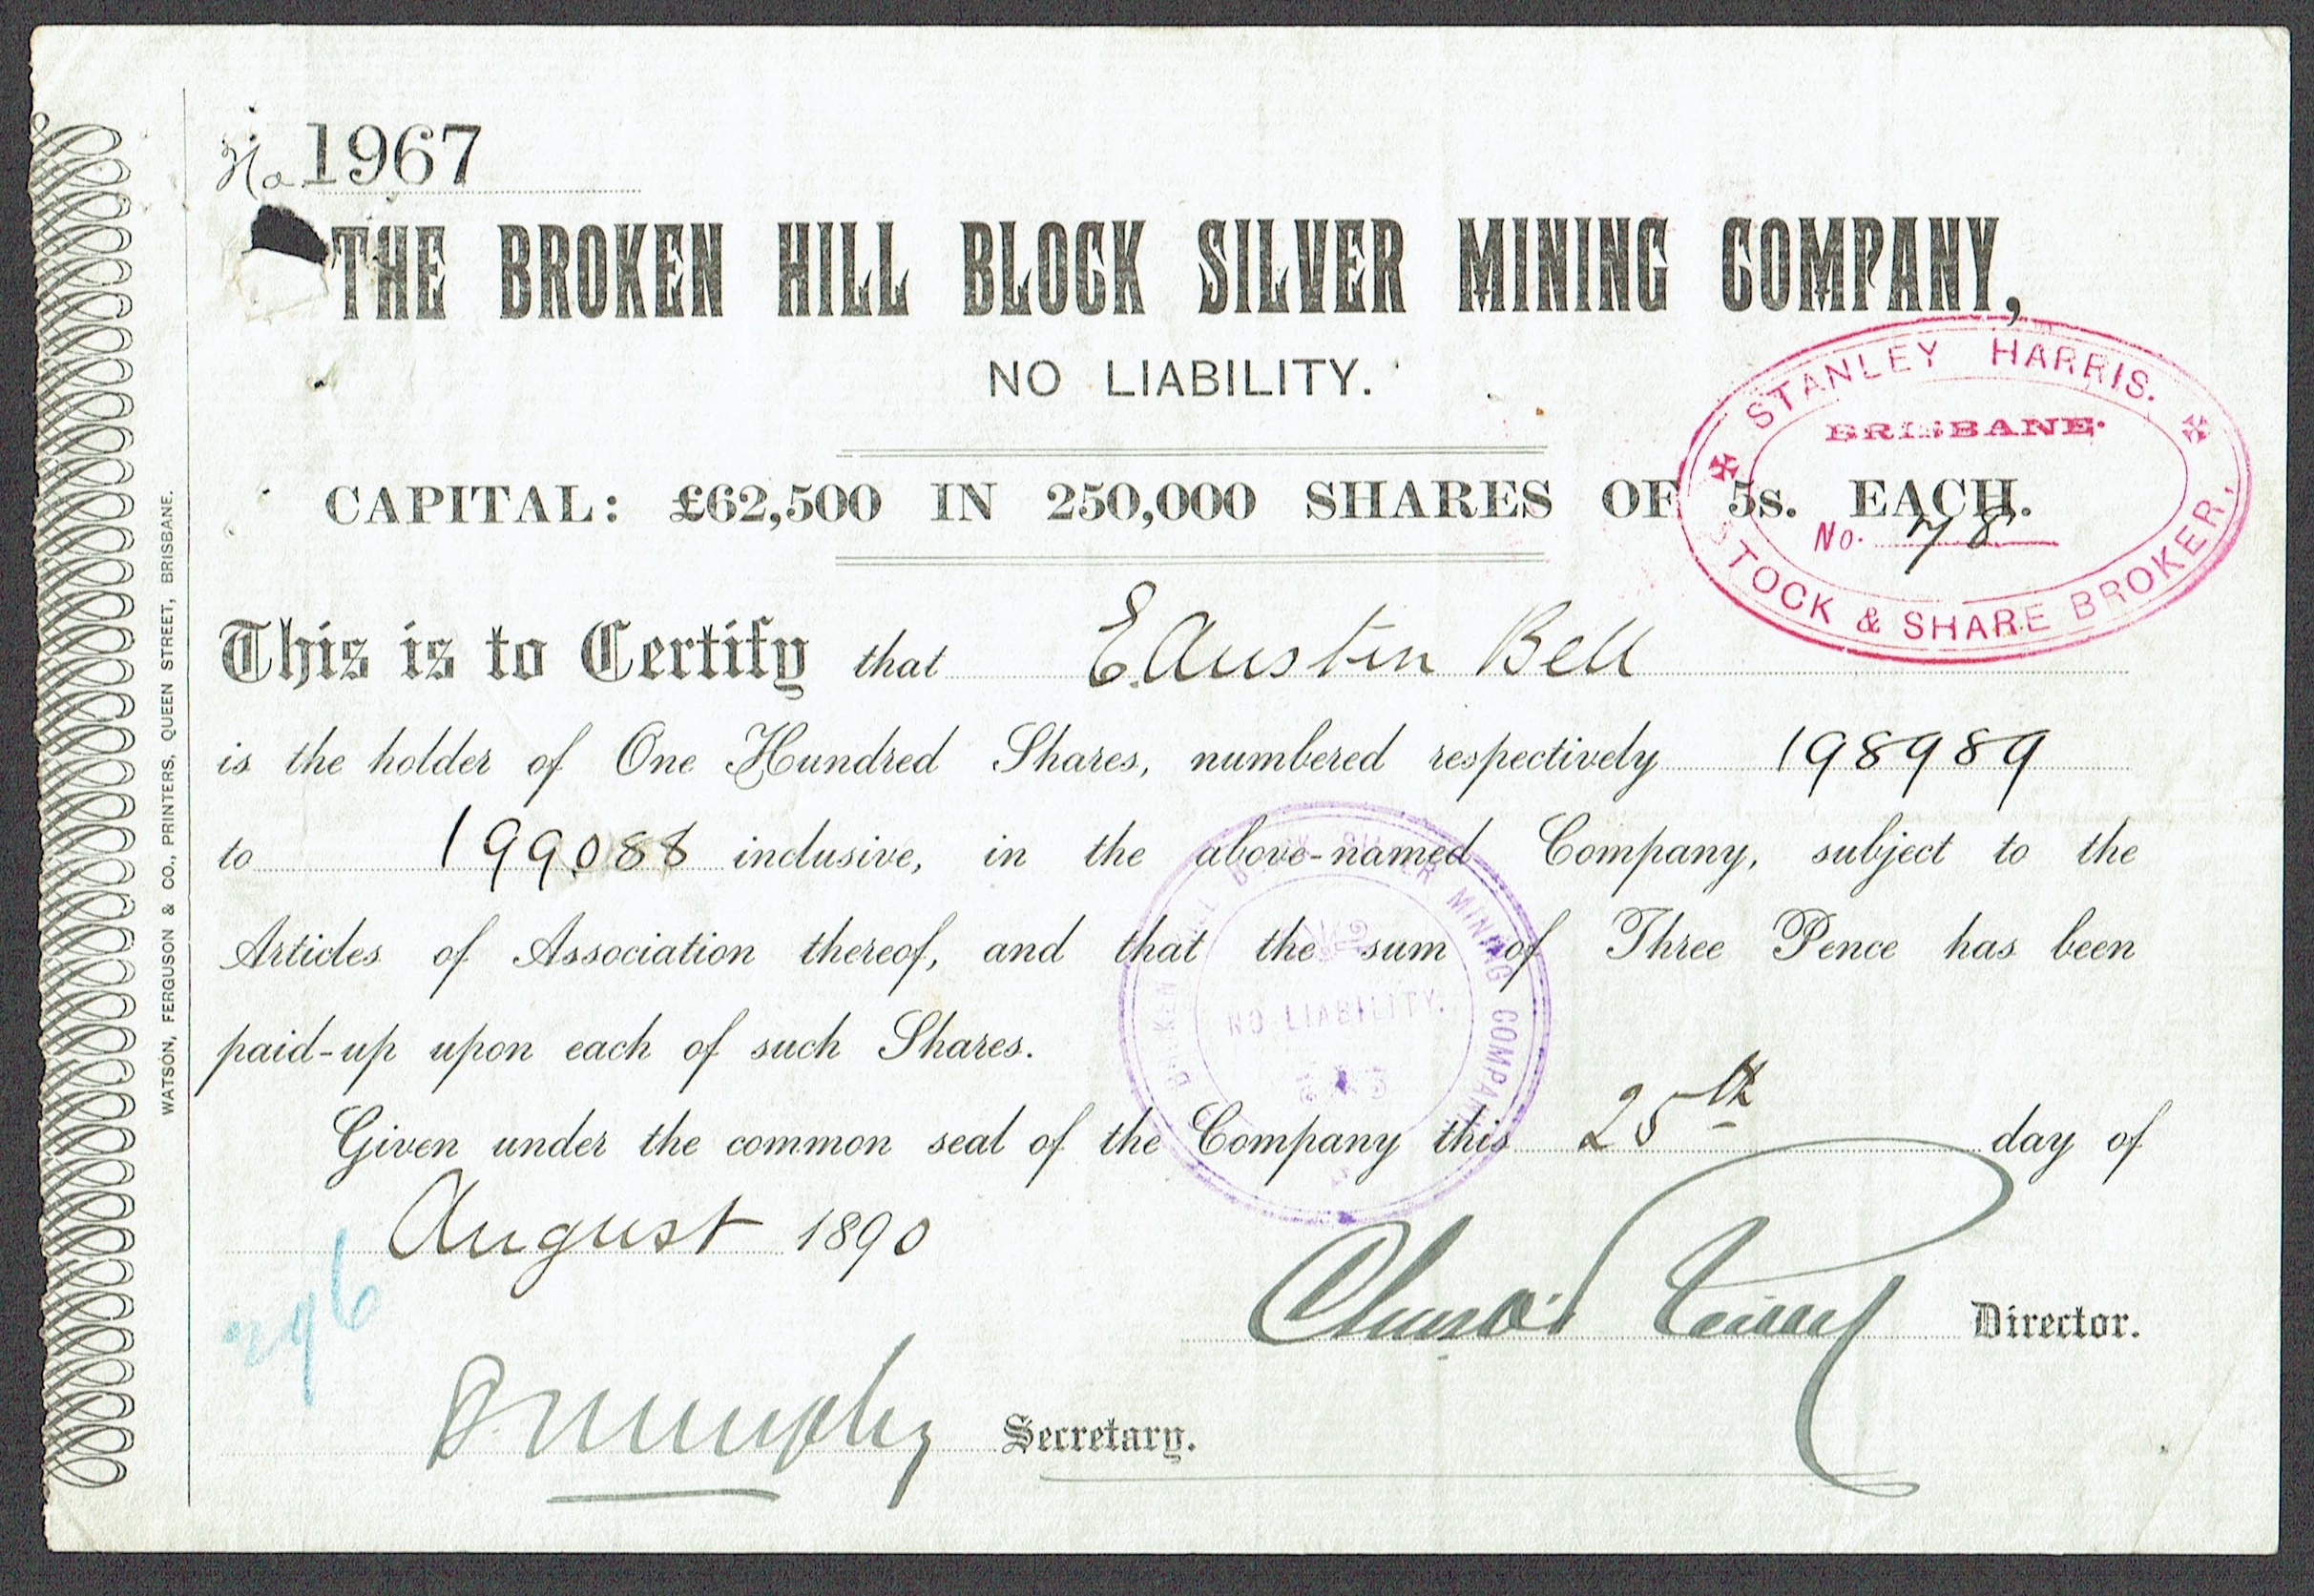 No 1967
THE BROKEN HILL BLOCK SILVER MINING COMPANY,
NO LIABILITY.
STANLEY HARRIS.
BRISBANE.
No. 78
STOCK & SHARE BROKER,
CAPITAL: £62,500 IN 250,000 SHARES OF 5s. EACH.
This is to Certify that E. Austin Bell
is the holder of One Hundred Shares, numbered respectively 198989
to 199088 inclusive, in the above-named Company, subject to the
Articles of Association thereof, and that the sum of Three Pence has been
paid-up upon each of such Shares.
BROKEN HILL BLOCK SILVER MINING COMPANY
NO LIABILITY.
Given under the common seal of the Company this 25th day of
August 1890
Director.
Murphy Secretary.
WATSON, FERGUSON & CO., PRINTERS, QUEEN STREET, BRISBANE.